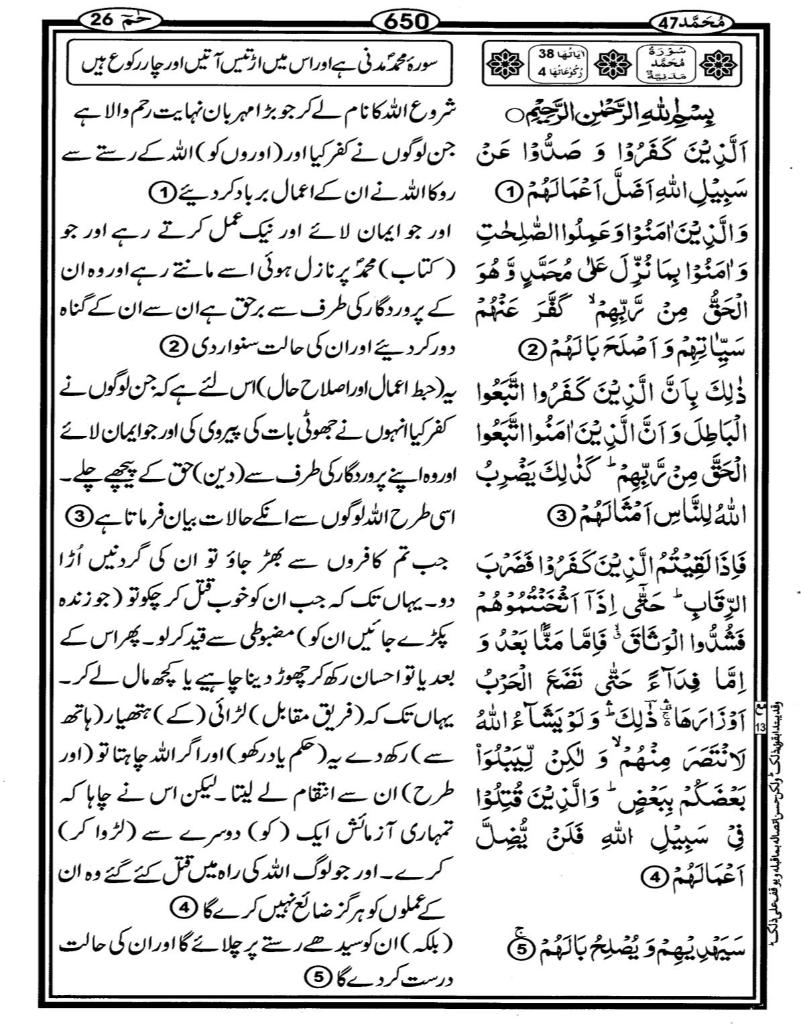 مُحَمَّد47
650
حٰمٓ 26
سُوْرَةُ مُحَمَّد مَدَنِيَّةٌ
اٰيَاتُهَا 38
رُكُوْعَاتُهَا 4
سورۂ محمدؐ مدنی ہے اور اس میں اڑتیس آتیں اور چار رکوع ہیں
بِسْمِ اللهِ الرَّحْمٰنِ الرَّحِيْمِ ○
اَلَّذِيْنَ كَفَرُوْا وَ صَدُّوْا عَنْ
سَبِيْلِ اللهِ اَضَلَّ اَعْمَالَهُمْ ①
وَالَّذِيْنَ اٰمَنُوْا وَعَمِلُوا الصّٰلِحٰتِ
وَاٰمَنُوْا بِمَا نُزِّلَ عَلٰى مُحَمَّدٍ وَّ هُوَ
الْحَقُّ مِنْ رَّبِّهِمْ ۙ كَفَّرَ عَنْهُمْ
سَيِّاٰتِهِمْ وَ اَصْلَحَ بَالَهُمْ ②
ذٰلِكَ بِاَنَّ الَّذِيْنَ كَفَرُوا اتَّبَعُوا
الْبَاطِلَ وَ اَنَّ الَّذِيْنَ اٰمَنُوا اتَّبَعُوا
الْحَقَّ مِنْ رَّبِّهِمْ ؕ كَذٰلِكَ يَضْرِبُ
اللهُ لِلنَّاسِ اَمْثَالَهُمْ ③
فَاِذَا لَقِيْتُمُ الَّذِيْنَ كَفَرُوْا فَضَرْبَ
الرِّقَابِ ؕ حَتّٰۤى اِذَاۤ اَثْخَنْتُمُوْهُمْ
فَشُدُّوا الْوَثَاقَ ۙ فَاِمَّا مَنًّۢا بَعْدُ وَ
اِمَّا فِدَآءً حَتّٰى تَضَعَ الْحَرْبُ
اَوْزَارَهَا ۛ۬ ذٰلِكَ ؕۛ وَ لَوْ يَشَآءُ اللهُ
لَانْتَصَرَ مِنْهُمْ ۙ وَ لٰكِنْ لِّيَبْلُوَا۠
بَعْضَكُمْ بِبَعْضٍ ؕ وَالَّذِيْنَ قُتِلُوْا
فِيْ سَبِيْلِ اللهِ فَلَنْ يُّضِلَّ
اَعْمَالَهُمْ ④
سَيَهْدِيْهِمْ وَ يُصْلِحُ بَالَهُمْ ۚ ⑤
شروع اللہ کا نام لے کر جو بڑا مہربان نہایت رحم والا ہے
جن لوگوں نے کفر کیا اور (اوروں کو) اللہ کے رستے سے
روکا اللہ نے ان کے اعمال برباد کر دیئے ①
اور جو ایمان لائے اور نیک عمل کرتے رہے اور جو
(کتاب) محمدؐ پر نازل ہوئی اسے مانتے رہے اور وہ ان
کے پروردگار کی طرف سے برحق ہے ان سے ان کے گناہ
دور کر دیئے اور ان کی حالت سنوار دی ②
یہ (حبط اعمال اور اصلاح حال) اس لئے ہے کہ جن لوگوں نے
کفر کیا انہوں نے جھوٹی بات کی پیروی کی اور جو ایمان لائے
اور وہ اپنے پروردگار کی طرف سے (دین) حق کے پیچھے چلے۔
اسی طرح اللہ لوگوں سے انکے حالات بیان فرماتا ہے ③
جب تم کافروں سے بھڑ جاؤ تو ان کی گردنیں اُڑا
دو۔ یہاں تک کہ جب ان کو خوب قتل کر چکو تو (جو زندہ
پکڑے جائیں ان کو) مضبوطی سے قید کر لو۔ پھر اس کے
بعد یا تو احسان رکھ کر چھوڑ دینا چاہیے یا کچھ مال لے کر۔
یہاں تک کہ (فریق مقابل) لڑائی (کے) ہتھیار (ہاتھ
سے) رکھ دے یہ (حکم یاد رکھو) اور اگر اللہ چاہتا تو (اور
طرح) ان سے انتقام لے لیتا۔ لیکن اس نے چاہا کہ
تمہاری آزمائش ایک (کو) دوسرے سے (لڑوا کر)
کرے۔ اور جو لوگ اللہ کی راہ میں قتل کئے گئے وہ ان
کے عملوں کو ہرگز ضائع نہیں کرے گا ④
(بلکہ) ان کو سیدھے رستے پر چلائے گا اور ان کی حالت
درست کر دے گا ⑤
13